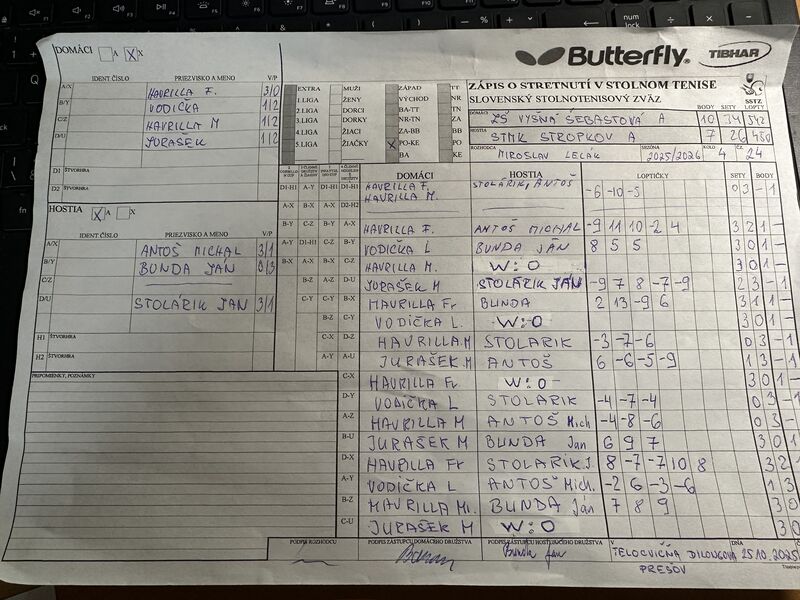 DOMÁCI A X X
Butterfly TIBHAR
ZÁPIS O STRETNUTÍ V STOLNOM TENISE
SLOVENSKÝ STOLNOTENISOVÝ ZVÄZ SSTZ
IDENT.ČÍSLO PRIEZVISKO A MENO V/P
A/X HAVRILLA F. 3/0
B/Y VODIČKA 1/2
C/Z HAVRILLA M 1/2
D/U JURAŠEK 1/2
D1 ŠTVORHRA
D2 ŠTVORHRA
EXTRA MUŽI ZÁPAD TT
1.LIGA ŽENY VÝCHOD NR
2.LIGA DORCI BA-TT
3.LIGA DORKY NR-TN ZA
4.LIGA ŽIACI ZA-BB
5.LIGA ŽIAČKY X PO-KE
BA KE
BODY SETY LOPTY
DOMÁCI ZŠ VYŠNÁ ŠEBASTOVÁ A 10 34 542
HOSTIA STMK STROPKOV A 7 26 480
ROZHODCA MIROSLAV LELÁK SEZÓNA 2025/2026 KOLO 4 ČZ 24
HOSTIA X A X
IDENT.ČÍSLO PRIEZVISKO A MENO V/P
A/X ANTOŠ MICHAL 3/1
B/Y BUNDA JAN 0/3
C/Z
D/U STOLÁRIK JAN 3/1
H1 ŠTVORHRA
H2 ŠTVORHRA
PRIPOMIENKY, POZNÁMKY
DOMÁCI HOSTIA LOPTIČKY SETY BODY
D1-H1 A-Y D1-H1 D1-H1 HAVRILLA F. HAVRILLA M. STOLÁRIK, ANTOŠ -6 -10 -5 0 3 - 1
A-X B-X A-X D2-H2
B-Y C-Z B-Y A-X HAVRILLA F. ANTOŠ MICHAL -9 11 10 -2 4 3 2 1 -
A-Y D1-H1 C-Z B-Y VODIČKA L BUNDA JÁN 8 5 5 3 0 1 -
B-X A-X C-Z HAVRILLA M. W:O 3 0 1 -
B-Z A-Z D-U JURAŠEK M STOLÁRIK JÁN -9 7 8 -7 -9 2 3 - 1
C-Y B-X HAVRILLA Fr BUNDA 2 13 -9 6 3 1 1 -
B-Z C-Y VODIČKA L. W:O 3 0 1 -
C-X D-Z HAVRILLA M STOLARIK -3 -7 -6 0 3 - 1
A-Y A-U JURAŠEK.M ANTOŠ 6 -6 -5 -9 1 3 - 1
C-X HAVRILLA Fr W:O 3 0 1 -
D-Y VODIČKA L STOLARIK -4 -7 -4 0 3 - 1
A-Z HAVRILLA M ANTOŠ Mich -4 -8 -6 0 3 -
B-U JURAŠEK M BUNDA Jan 6 9 7 3 0 1
D-X HAVRILLA Fr STOLARIK J. 8 -7 -7 10 8 3 2 1
A-Y VODIČKA L ANTOŠ Mich. -2 6 -3 -6 1 3
B-Z HAVRILLA Mi. BUNDA Ján 7 8 9 3 0
C-U JURAŠEK M W:O 3 0
PODPIS ROZHODCU PODPIS ZÁSTUPCU DOMÁCEHO DRUŽSTVA PODPIS ZÁSTUPCU HOSŤUJÚCEHO DRUŽSTVA V DŇA
Bunda Jan TELOCVIČŇA DILONGOVA 25.10.2025
PREŠOV